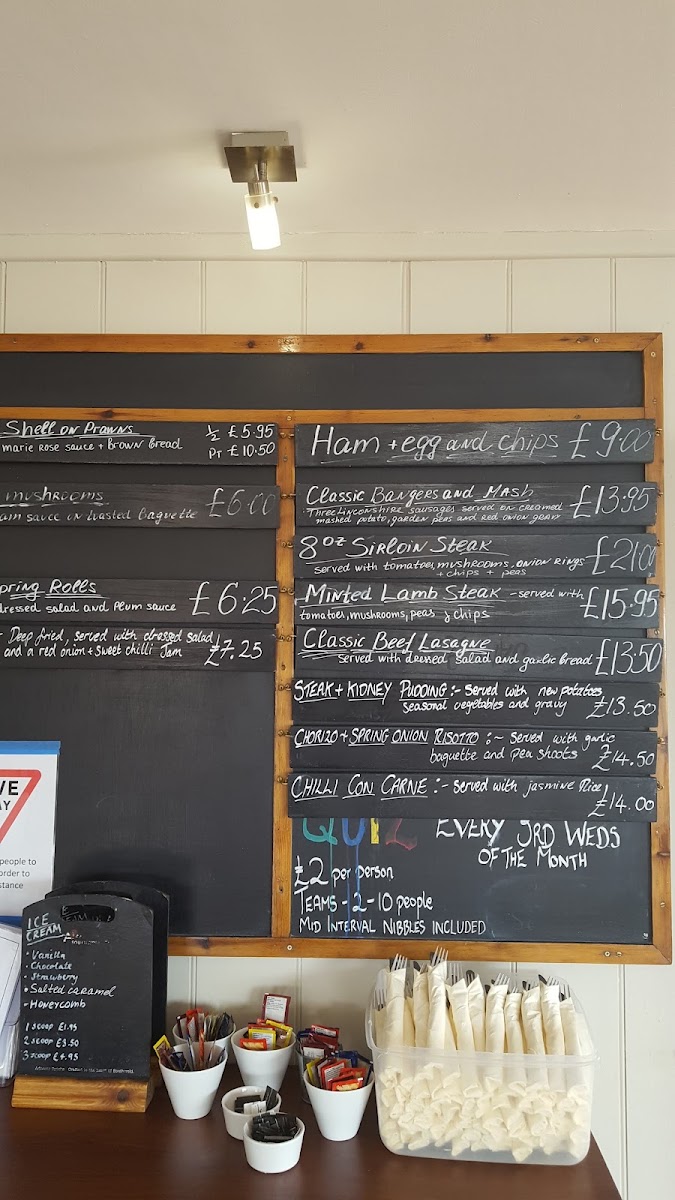 Shell on Prawns ½ £5.95
marie rose sauce + Brown Bread Pt £10.50
mushrooms £6.00
sauce in toasted Baguette
pring Rolls £6.25
dressed salad and Plum sauce
Deep fried, served with dressed salad
and a red onion + sweet chilli Jam £7.25
Ham + egg and chips £9.00
Classic Bangers and Mash £13.95
Three Lincolnshire sausages served on creamed
mashed potato, garden peas and red onion gravy
8oz Sirloin Steak £21.00
served with tomatoes, mushrooms, onion rings
+ chips + peas
Minted Lamb Steak - served with £15.95
tomatoes, mushrooms, peas, chips
Classic Beef Lasagne £13.50
served with dressed salad and garlic bread
Steak + Kidney Pudding :- Served with new potatoes
seasonal vegetables and gravy £13.50
Chorizo + Spring Onion Risotto :- Served with garlic
baguette and pea shoots £14.50
Chilli Con Carne :- Served with jasmine Rice £14.00
QUIZ EVERY 3RD WEDS
OF THE MONTH
£2 per person
TEAMS - 2-10 people
MID INTERVAL NIBBLES INCLUDED
VE
AY
people to
order to
stance
ICE
CREAM
· Vanilla
· Chocolate
· Strawberry
· Salted caramel
- Honeycomb
1 scoop £1.95
2 scoop £3.50
3 scoop £4.95